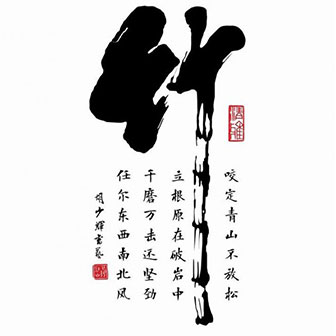 竹
咬定青山不放松
立根原在破岩中
千磨万击还坚劲
任尔东西南北风
胡少辉书艺